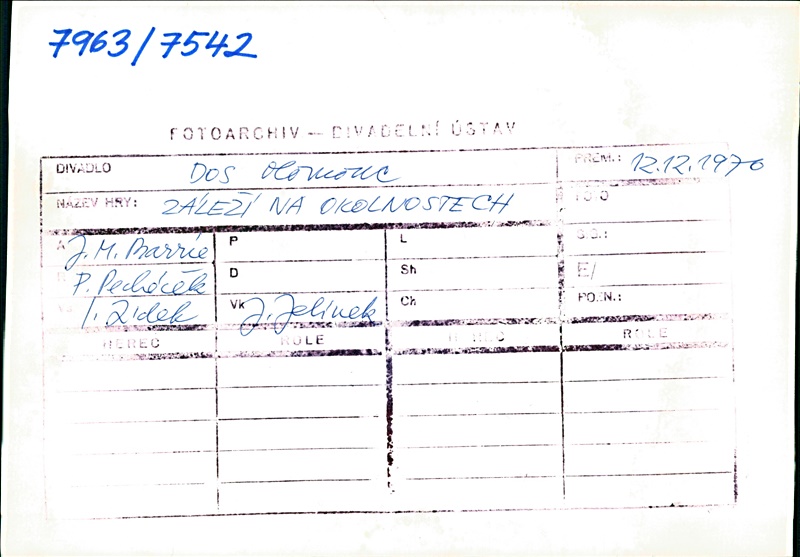 7963/7542
FOTOARCHIV — DIVADELNÍ ÚSTAV
DIVADLO DOS Olomouc PREM.: 12.12.1970
NÁZEV HRY: ZÁLEŽÍ NA OKOLNOSTECH FOTO
A J. M. Barrie P L S.G.:
P. Pecháček D Sh E/
I. Zidek Vk J. Jelínek Ch POZN.:
HEREC ROLE HEREC ROLE